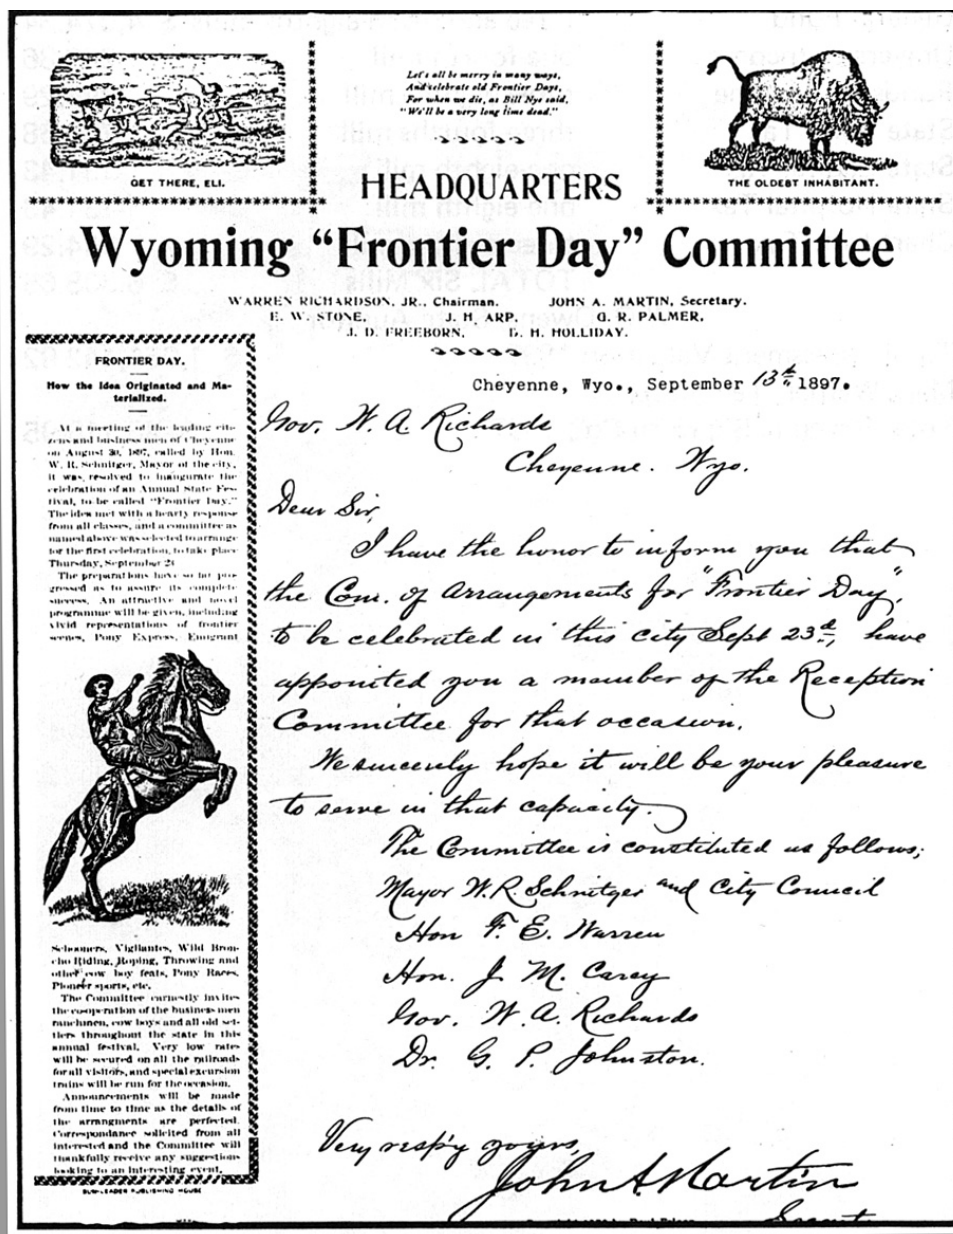 Let's all be merry in many ways,
And celebrate old Frontier Days,
For when we die, as Bill Nye said,
"We'll be a very long time dead."
GET THERE, ELI.
HEADQUARTERS
THE OLDEST INHABITANT.
Wyoming "Frontier Day" Committee
WARREN RICHARDSON, JR., Chairman. JOHN A. MARTIN, Secretary.
E. W. STONE, J. H. ARP, G. R. PALMER,
J. D. FREEBORN, D. H. HOLLIDAY.
FRONTIER DAY.
How the Idea Originated and Ma-
terialized.
At a meeting of the leading citi-
zens and business men of Cheyenne
on August 30, 1897, called by Hon.
W. R. Schnitger, Mayor of the city,
it was resolved to inaugurate the
celebration of an Annual State Fes-
tival, to be called "Frontier Day."
The idea met with a hearty response
from all classes, and a committee as
named above was selected to arrange
for the first celebration, to take place
Thursday, September
The preparations have so far pro-
gressed as to assure its complete
success. An attractive and novel
programme will be given, including
vivid representations of frontier
scenes, Pony Express, Emigrant
Schooners, Vigilantes, Wild Bron-
cho Riding, Roping, Throwing and
other cow boy feats, Pony Races,
Pioneer sports, etc.
The Committee earnestly invites
the cooperation of the business men
ranchmen, cow boys and all old set-
tlers throughout the state in this
annual festival. Very low rates
will be secured on all the railroads
for all visitors, and special excursion
trains will be run for the occasion.
Announcements will be made
from time to time as the details of
the arrangments are perfected.
Correspondance solicited from all
interested and the Committee will
thankfully receive any suggestions
looking to an interesting event.
SUN-LEADER PUBLISHING HOUSE
Cheyenne, Wyo., September 13th, 1897.
Gov. W. A. Richards
Cheyenne. Wyo.
Dear Sir,
I have the honor to inform you that
the Com. of Arrangements for "Frontier Day",
to be celebrated in this city Sept 23d, have
appointed you a member of the Reception
Committee for that occasion.
We sincerely hope it will be your pleasure
to serve in that capacity.
The Committee is constituted as follows;
Mayor W. R. Schnitger and City Council
Hon F. E. Warren
Hon. J. M. Carey
Gov. W. A. Richards
Dr. G. P. Johnston.
Very resp'y yours,
John A Martin